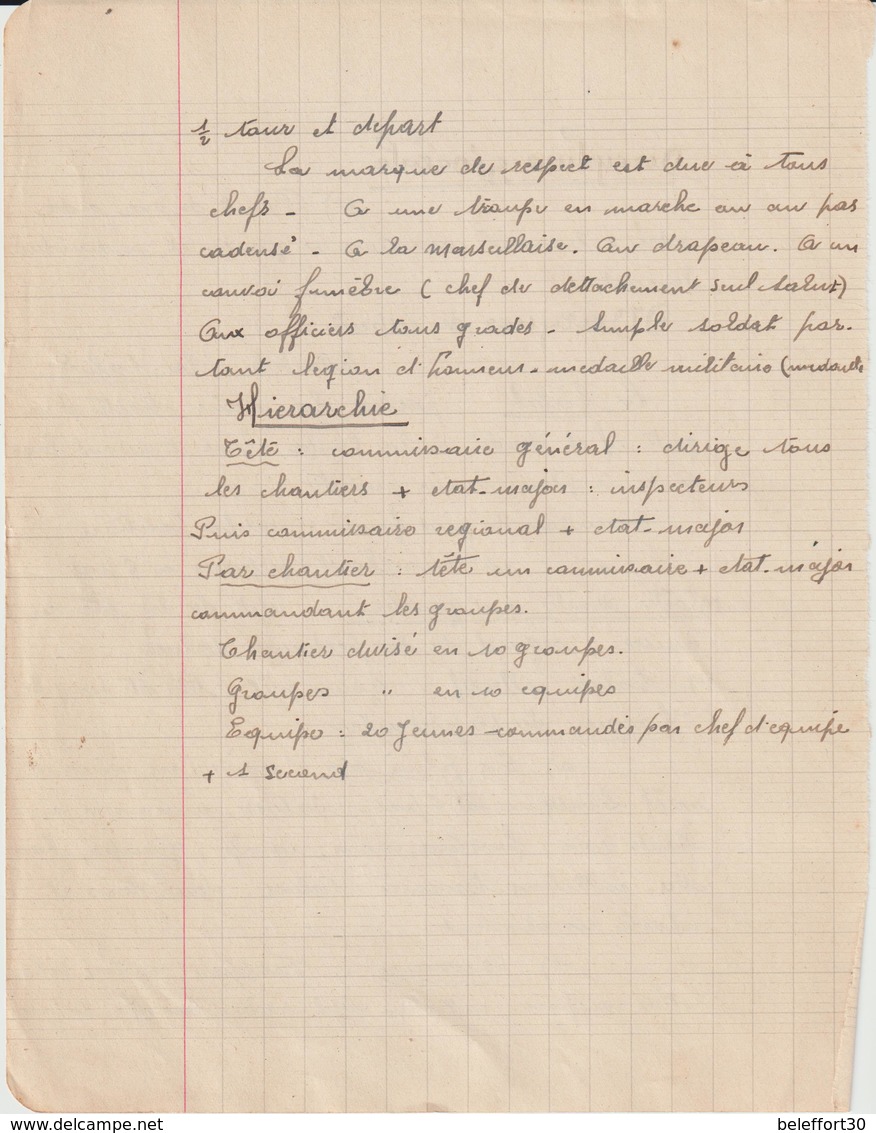 1/2 tour et départ
La marque de respect est due à tous
chefs - A une troupe en marche ou au pas
cadensé - A la marseillaise. Au drapeau. A un
convoi funèbre (chef de dettachement seul salut)
Aux officiers tous grades - Simple soldat por-
tant legion d'honneur - medaille militaire (
Hierarchie
Tête : commissaire général : dirige tous
les chantiers + etat-major : inspecteurs
Puis commissaire regional + etat-major
Par chantier : tête un commissaire + etat-major
commandant les groupes.
Chantier divisé en 10 groupes.
Groupes " en 10 equipes
Equipe : 20 Jeunes commandés par chef d'equipe
+ 1 second
www.delcampe.net
beleffort30